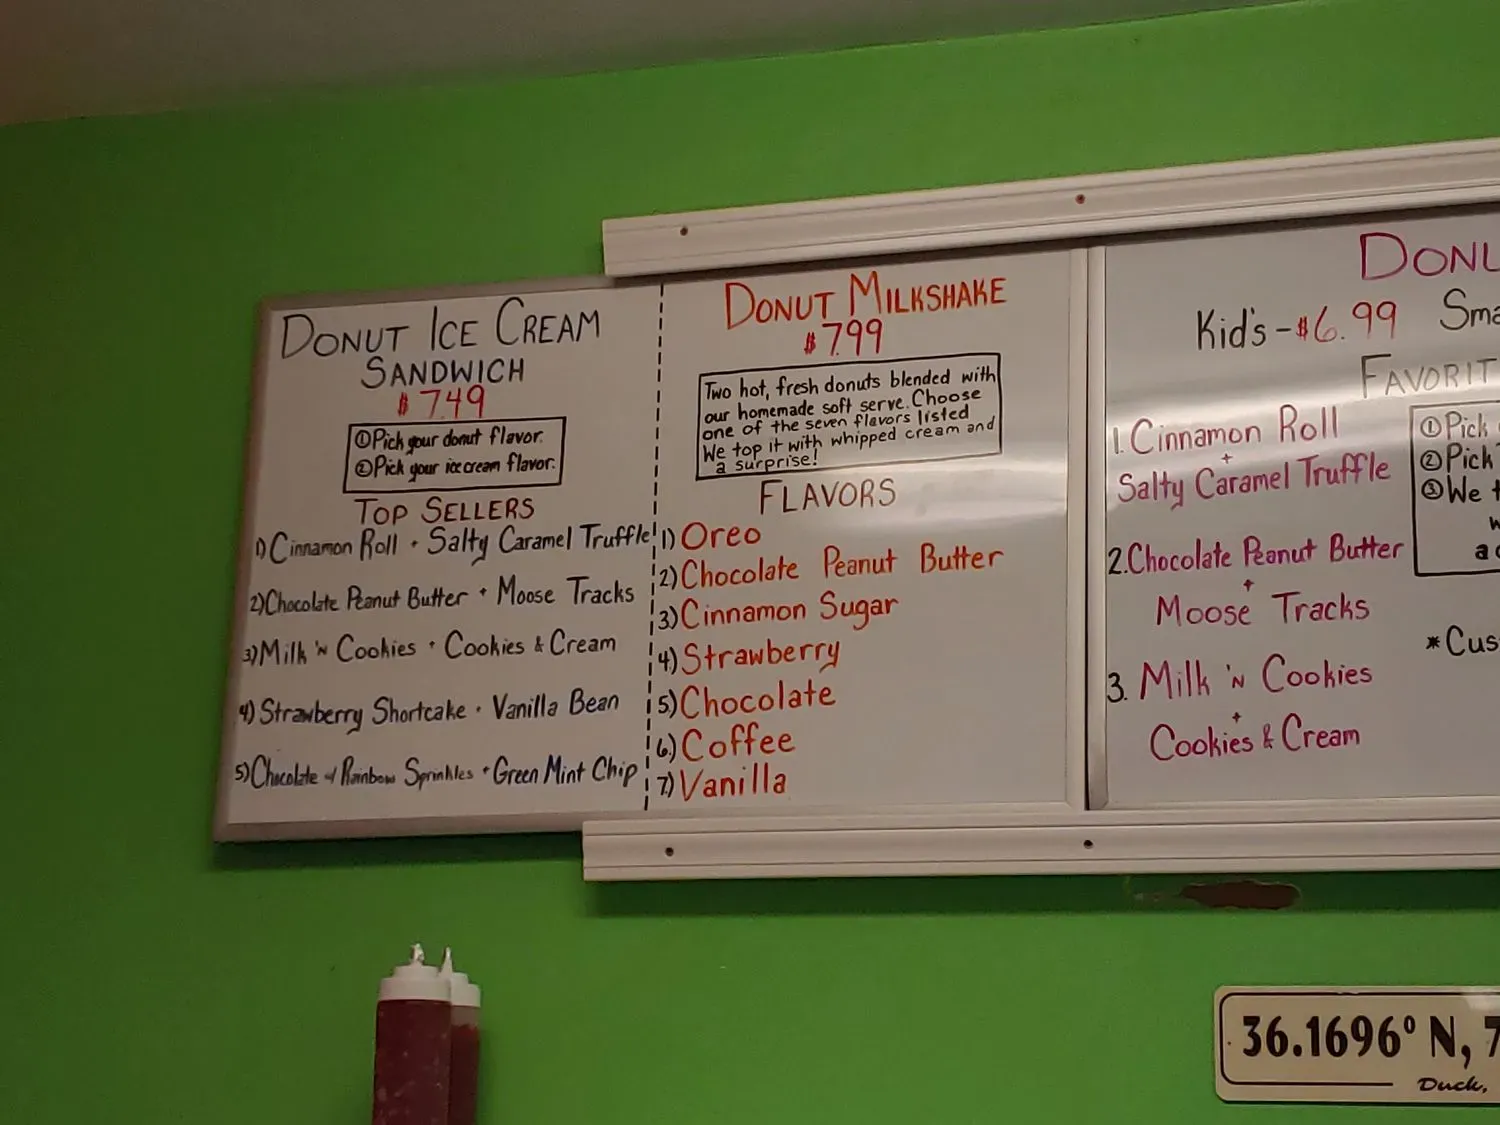 DONUT ICE CREAM
SANDWICH
$7.49
①Pick your donut flavor.
②Pick your ice cream flavor.
TOP SELLERS
1)Cinnamon Roll + Salty Caramel Truffle
2)Chocolate Peanut Butter + Moose Tracks
3)Milk 'N Cookies + Cookies & Cream
4)Strawberry Shortcake + Vanilla Bean
5)Chocolate w/ Rainbow Sprinkles + Green Mint Chip
DONUT MILKSHAKE
$7.99
Two hot, fresh donuts blended with
our homemade soft serve. Choose
one of the seven flavors listed
We top it with whipped cream and
a surprise!
FLAVORS
1) Oreo
2) Chocolate Peanut Butter
3) Cinnamon Sugar
4) Strawberry
5) Chocolate
6.) Coffee
7.) Vanilla
DONU
Kid's - $6.99 Sma
FAVORIT
1. Cinnamon Roll
+
Salty Caramel Truffle
2. Chocolate Peanut Butter
+
Moose Tracks
3. Milk 'N Cookies
+
Cookies & Cream
① Pick
② Pick
③ We t
w
a c
* Cus
36.1696° N, 7
Duck,